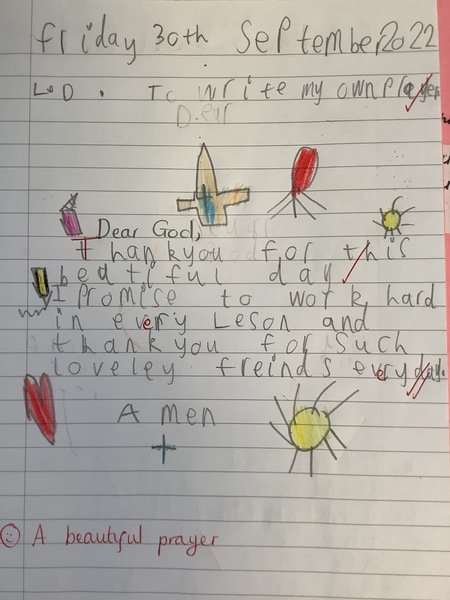 Friday 30th September 2022
L.O. To write my own prayer
Dear
Dear God,
Thankyou for this
beatiful day
I Promise to work hard
in every Leson and
thankyou for Such
loveley freinds everyday.
A men
A beautiful prayer